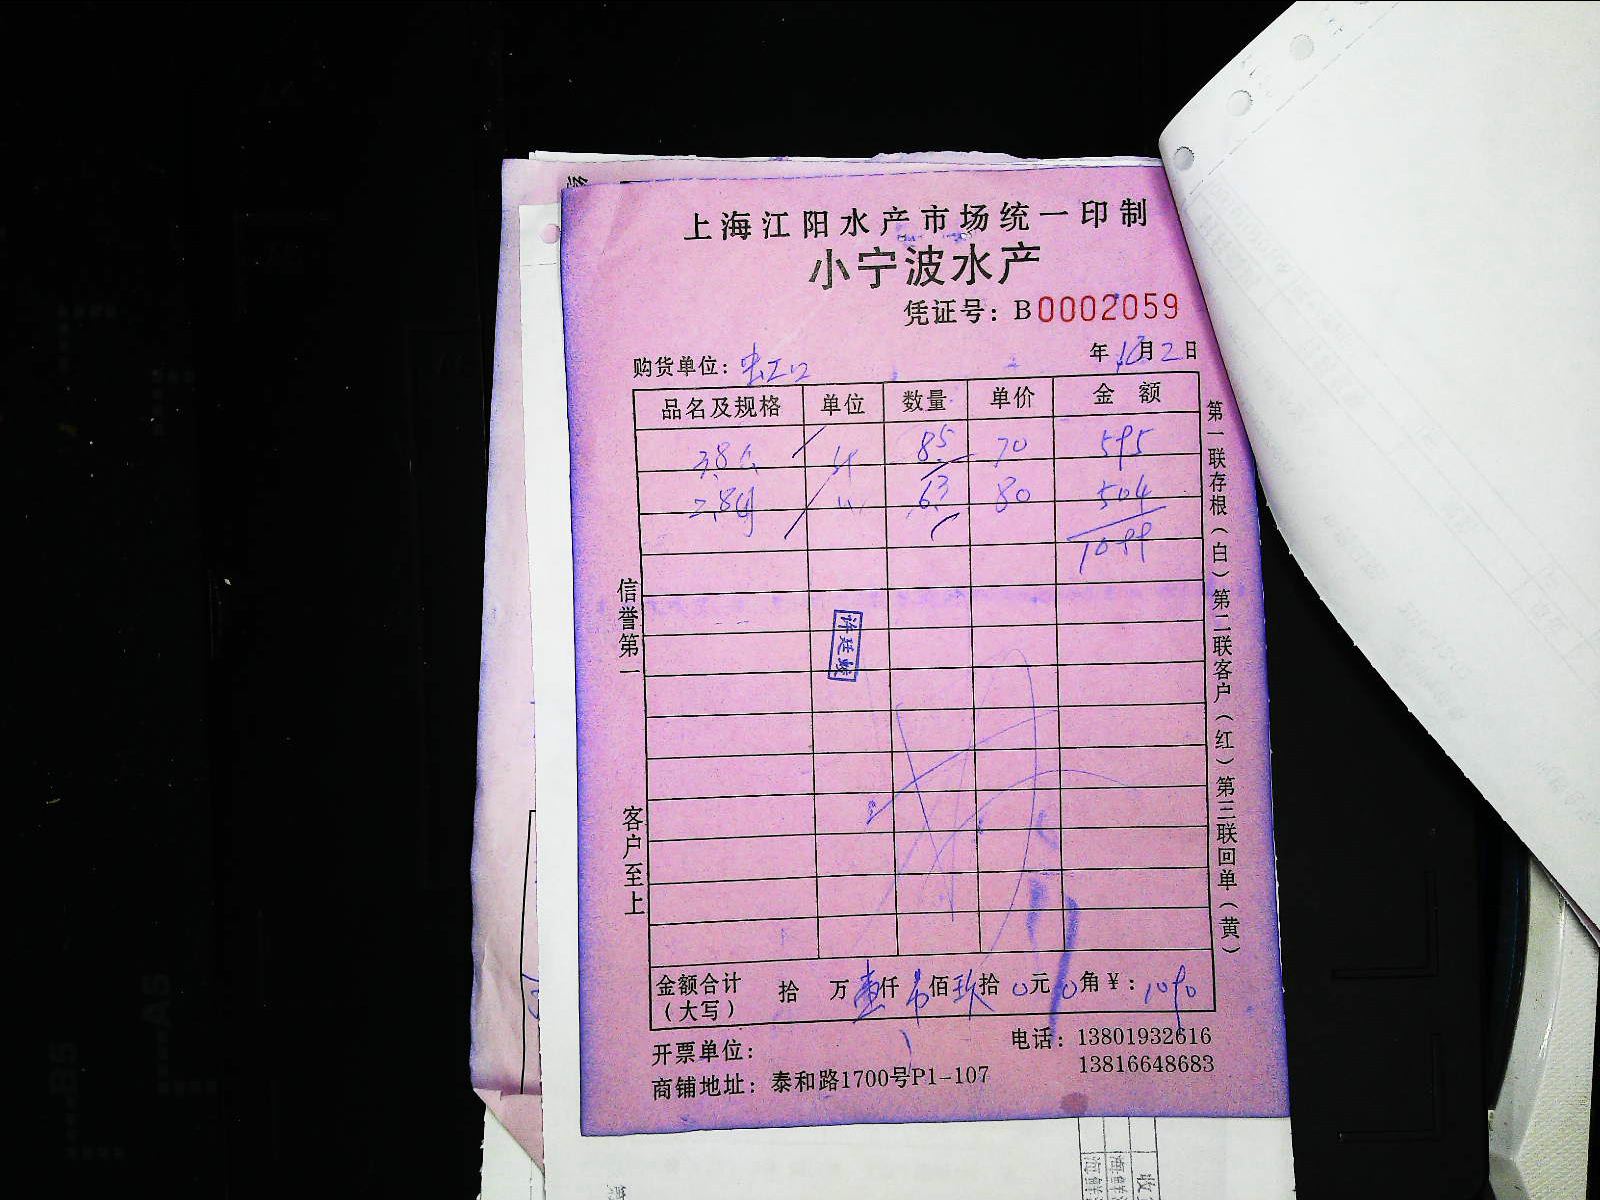 上海江阳水产市场统一印制
小宁波水产
凭证号：B0002059
购货单位：虹口 年 月2日
品名及规格 单位 数量 单价 金额
3.8 8.5 70 595
2.8 6.3 80 504
1099
许廷
信誉第一
客户至上
第一联存根（白）第二联客户（红）第三联回单（黄）
金额合计（大写） 拾 万壹仟 佰玖拾0元0角¥：1090
开票单位：
电话：13801932616
13816648683
商铺地址：泰和路1700号P1-107